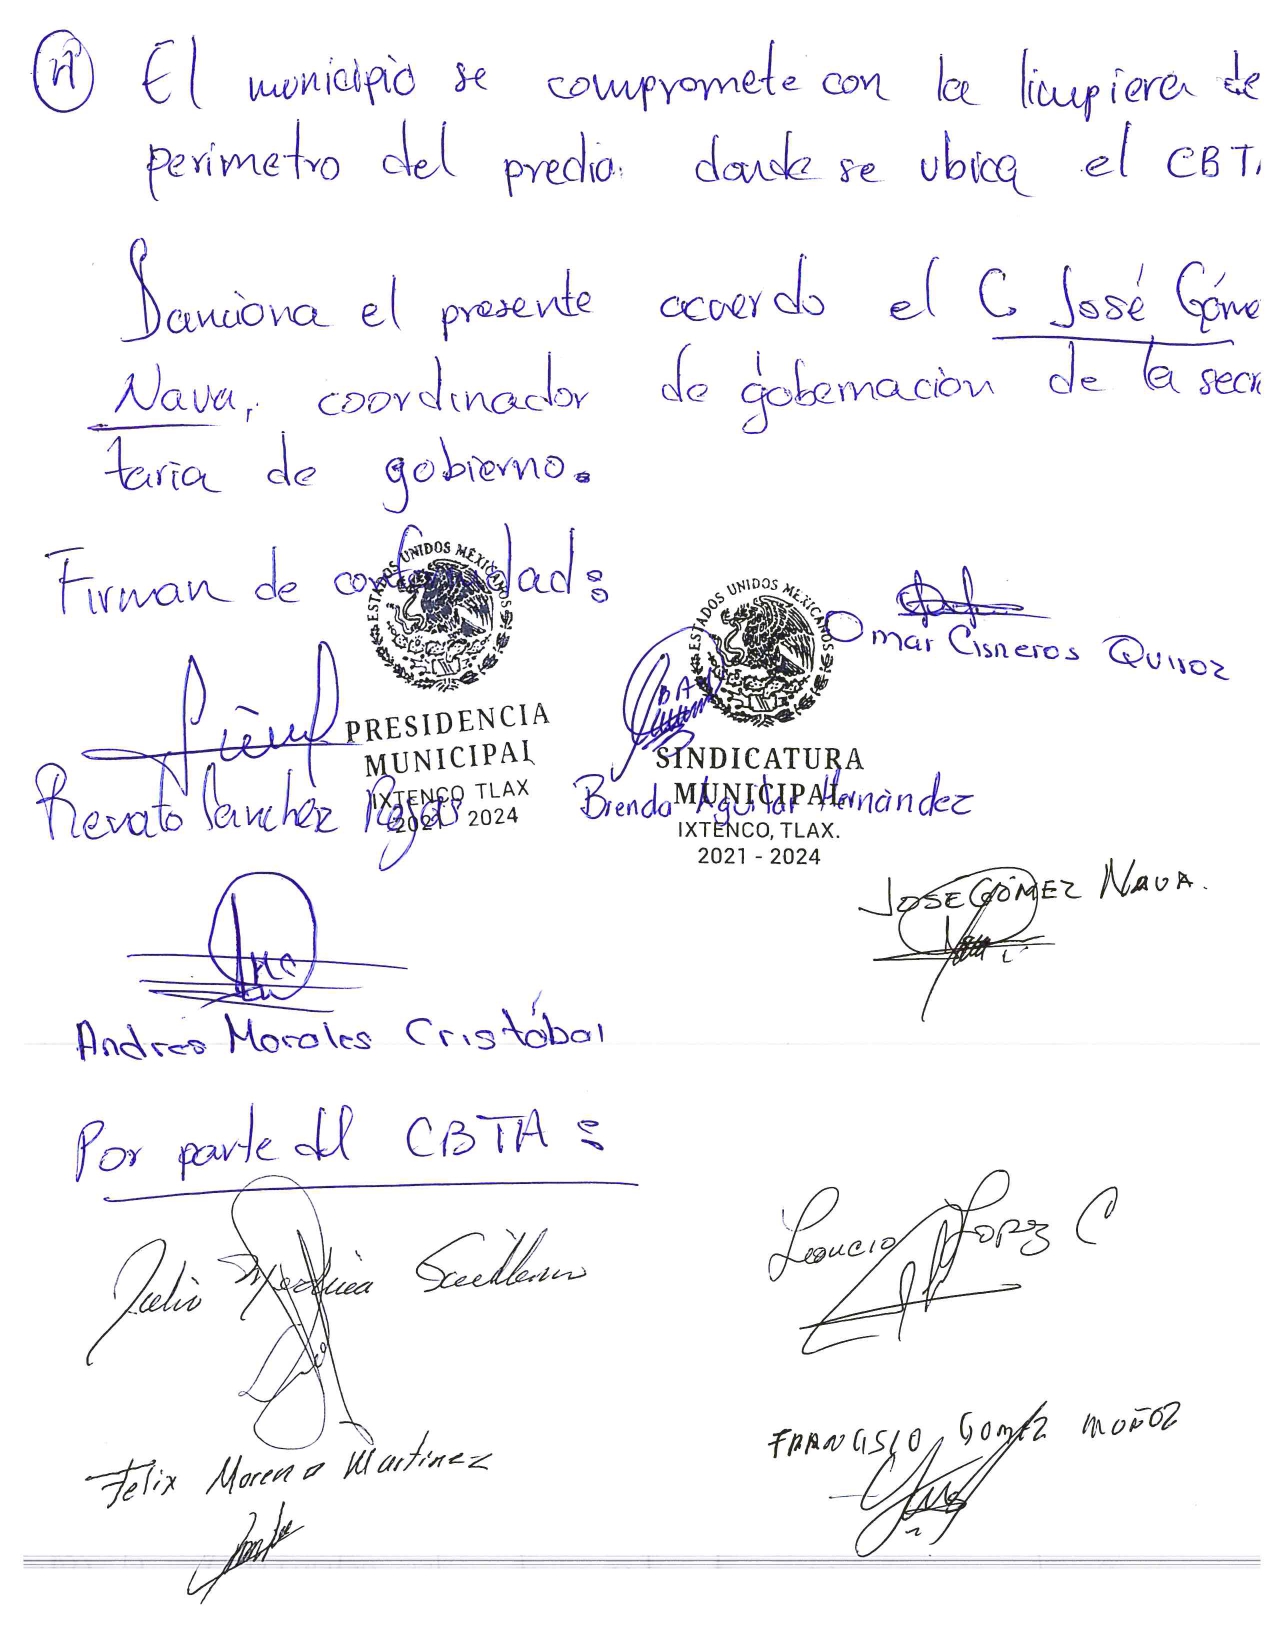 El municipio se compromete con la limpieza de
perimetro del predio. donde se ubica el CBTA
Sanciona el presente acuerdo el C. José Góme
Nava, coordinador de gobernación de la secre
taria de gobierno.
Firman de conformidad:
ESTADOS UNIDOS MEXICANOS
ESTADOS UNIDOS MEXICANOS
Omar Cisneros Quiroz
PRESIDENCIA
MUNICIPAL
IXTENCO TLAX
2021 2024
Renato Sánchez Rojas
BAH
SINDICATURA
MUNICIPAL
IXTENCO, TLAX.
2021 - 2024
Brenda Aguilar Hernández
JOSE GÓMEZ NAVA.
Andres Morales Cristóbal
Por parte del CBTA:
Julio Guillermo
Leoncio Lopez C
Felix Moreno Martinez
FRANCISCO GOMEZ MUÑOZ